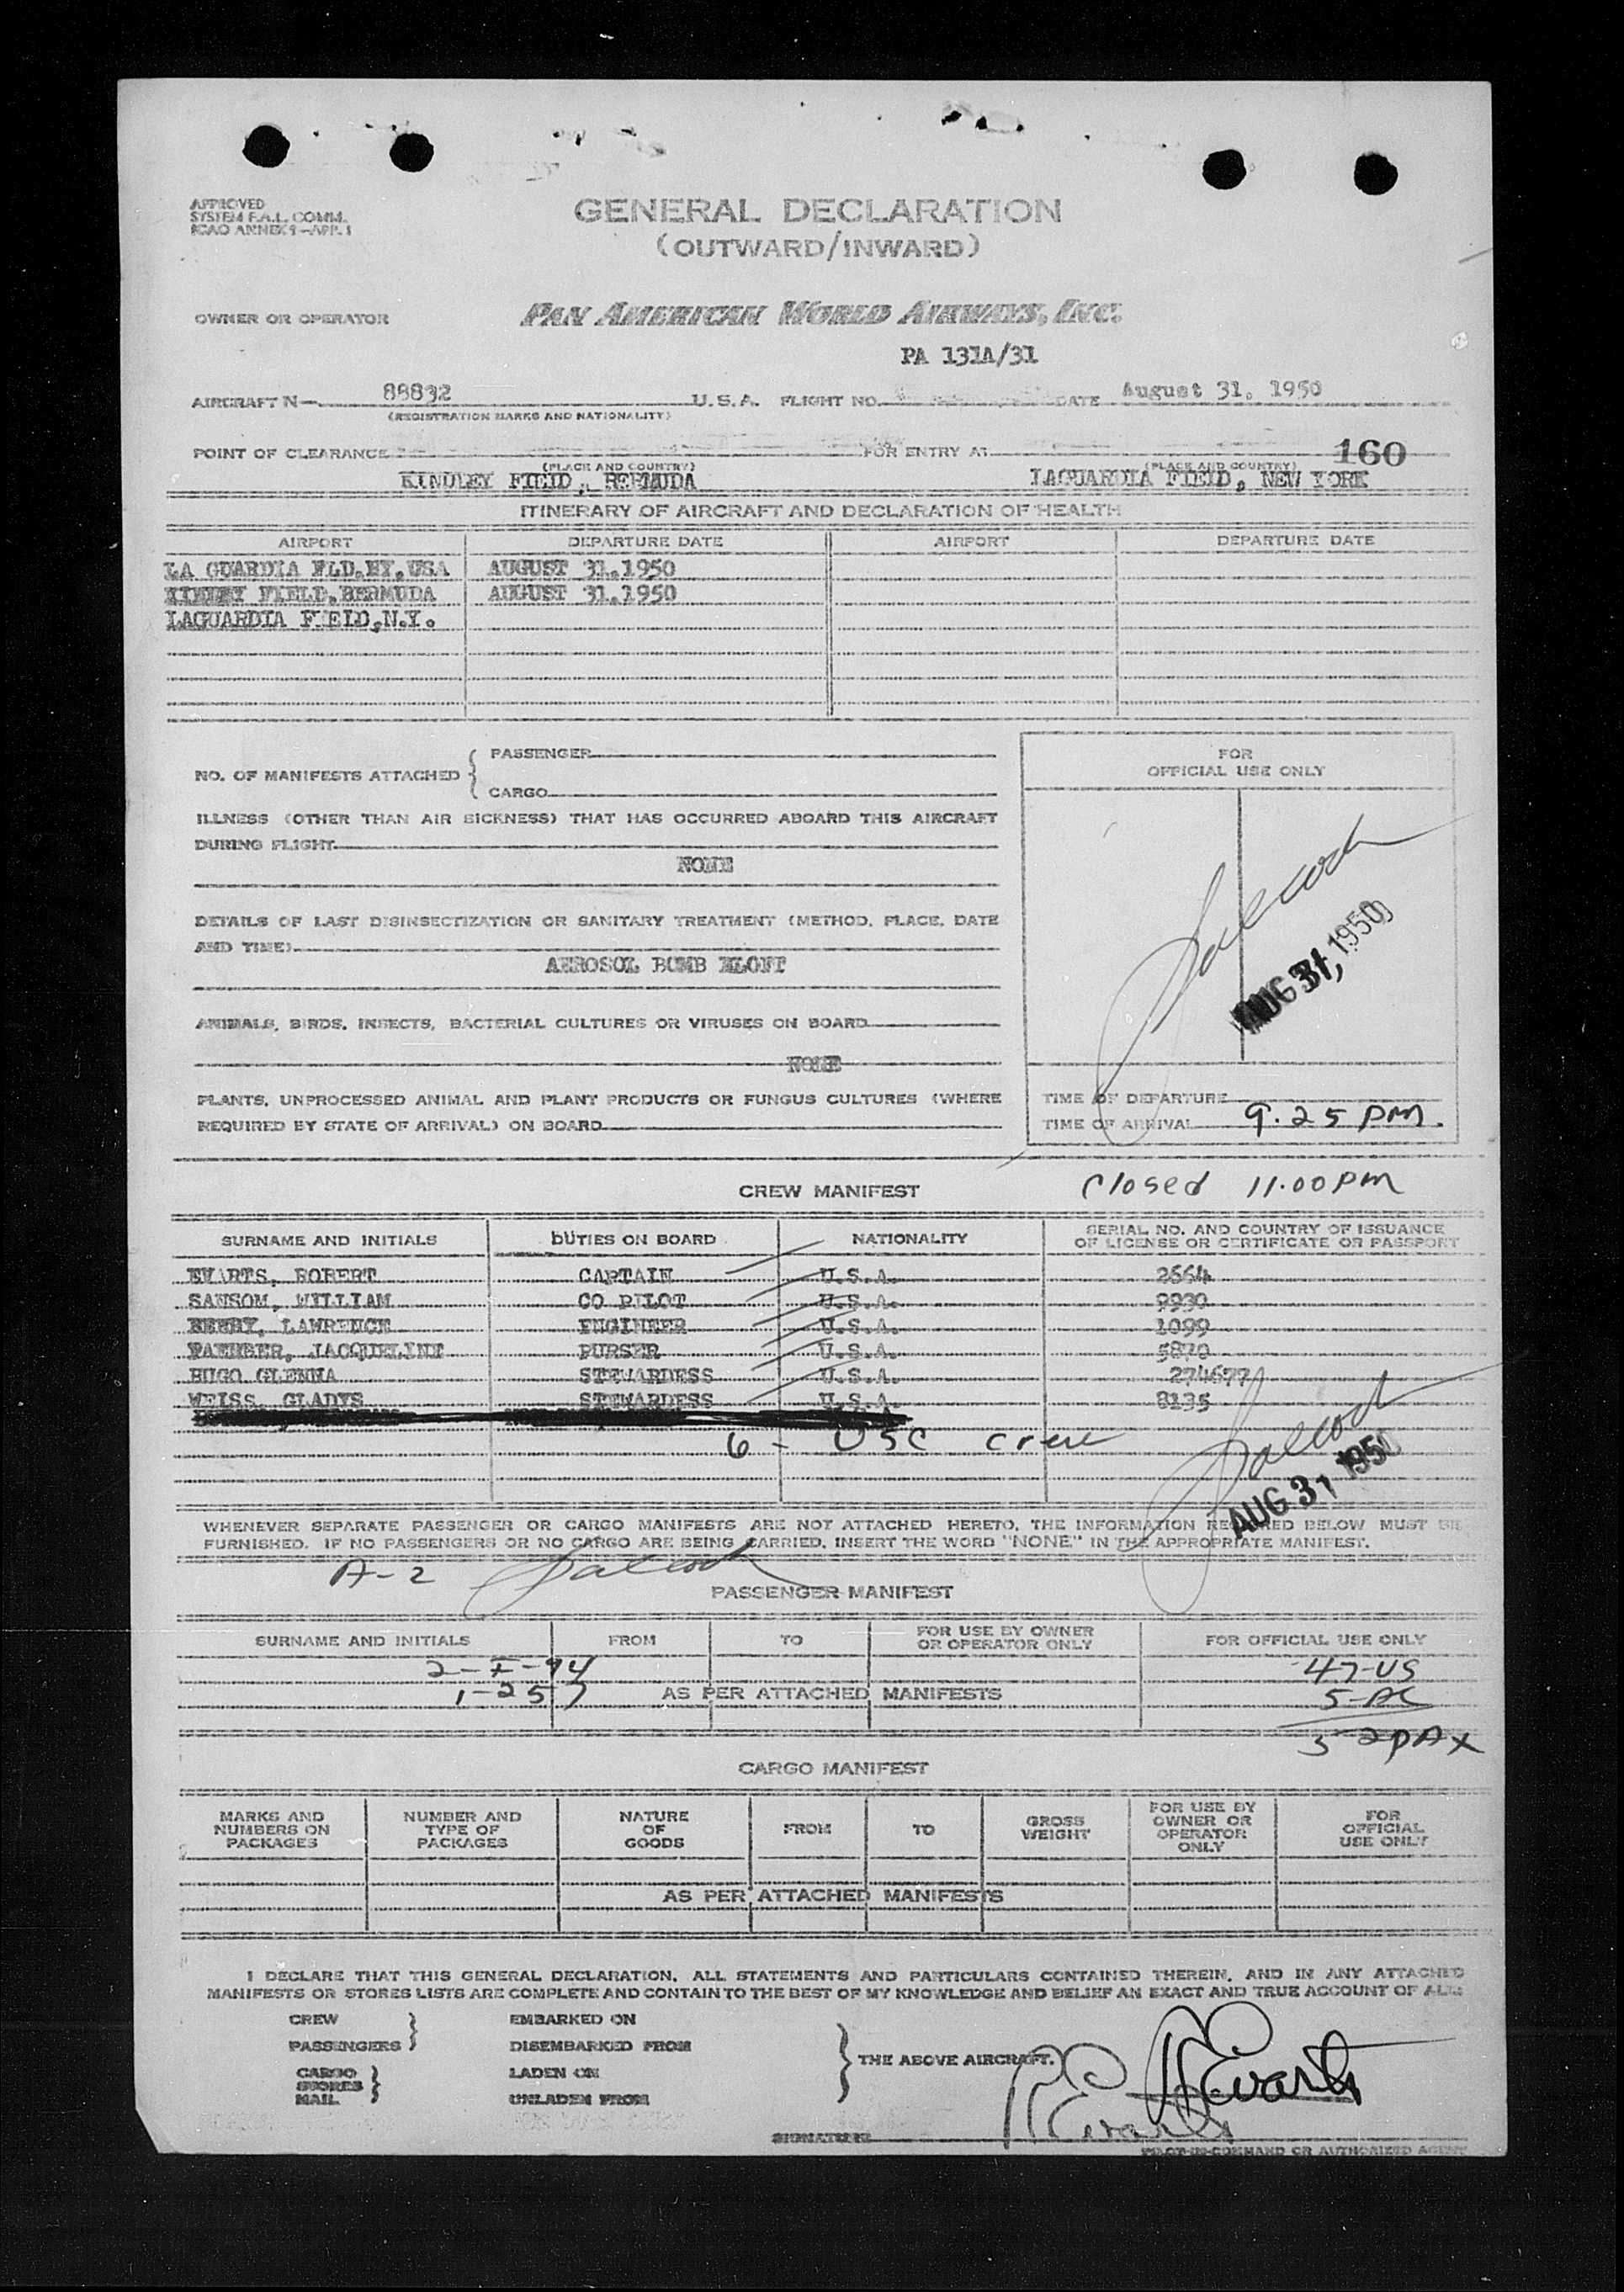 APPROVED
SYSTEM F.A.L. COMM.
ICAO ANNEX 9-APP. 1
GENERAL DECLARATION
(OUTWARD/INWARD)
OWNER OR OPERATOR PAN AMERICAN WORLD AIRWAYS, INC.
PA 131A/31
AIRCRAFT N— 88832 U.S.A. FLIGHT NO. DATE August 31, 1950
(REGISTRATION MARKS AND NATIONALITY)
POINT OF CLEARANCE FOR ENTRY AT 160
(PLACE AND COUNTRY) (PLACE AND COUNTRY)
KINDLEY FIELD, BERMUDA LAGUARDIA FIELD, NEW YORK
ITINERARY OF AIRCRAFT AND DECLARATION OF HEALTH
AIRPORT DEPARTURE DATE AIRPORT DEPARTURE DATE
LA GUARDIA FLD.NY.USA AUGUST 31.1950
FIELD.BERMUDA AUGUST 31.1950
LAGUARDIA FIELD,N.Y.
NO. OF MANIFESTS ATTACHED { PASSENGER
CARGO
FOR
OFFICIAL USE ONLY
ILLNESS (OTHER THAN AIR SICKNESS) THAT HAS OCCURRED ABOARD THIS AIRCRAFT
DURING FLIGHT
NONE
DETAILS OF LAST DISINSECTIZATION OR SANITARY TREATMENT (METHOD, PLACE, DATE
AND TIME)
AEROSOL BOMB
AUG 31, 1950
ANIMALS, BIRDS, INSECTS, BACTERIAL CULTURES OR VIRUSES ON BOARD
NONE
PLANTS, UNPROCESSED ANIMAL AND PLANT PRODUCTS OR FUNGUS CULTURES (WHERE
REQUIRED BY STATE OF ARRIVAL) ON BOARD
TIME OF DEPARTURE
TIME OF ARRIVAL 9.25 PM.
CREW MANIFEST Closed 11.00 PM
SURNAME AND INITIALS DUTIES ON BOARD NATIONALITY SERIAL NO. AND COUNTRY OF ISSUANCE
OF LICENSE OR CERTIFICATE OR PASSPORT
EVARTS, ROBERT CAPTAIN U.S.A. 2664
SANSOM, WILLIAM CO PILOT U.S.A. 9930
LAWRENCE ENGINEER U.S.A. 1099
JACQUELINE PURSER U.S.A. 5870
HUGO GLENNA STEWARDESS U.S.A. 274677
WEISS, GLADYS STEWARDESS U.S.A. 8135
6 - USC crew
AUG 31 1950
WHENEVER SEPARATE PASSENGER OR CARGO MANIFESTS ARE NOT ATTACHED HERETO, THE INFORMATION REQUIRED BELOW MUST BE
FURNISHED. IF NO PASSENGERS OR NO CARGO ARE BEING CARRIED, INSERT THE WORD "NONE" IN THE APPROPRIATE MANIFEST.
A-2
PASSENGER MANIFEST
SURNAME AND INITIALS FROM TO FOR USE BY OWNER
OR OPERATOR ONLY FOR OFFICIAL USE ONLY
2-I-94 47-US
1-257 AS PER ATTACHED MANIFESTS 5-AC
52 PAX
CARGO MANIFEST
MARKS AND
NUMBERS ON
PACKAGES NUMBER AND
TYPE OF
PACKAGES NATURE
OF
GOODS FROM TO GROSS
WEIGHT FOR USE BY
OWNER OR
OPERATOR
ONLY FOR
OFFICIAL
USE ONLY
AS PER ATTACHED MANIFESTS
I DECLARE THAT THIS GENERAL DECLARATION, ALL STATEMENTS AND PARTICULARS CONTAINED THEREIN, AND IN ANY ATTACHED
MANIFESTS OR STORES LISTS ARE COMPLETE AND CONTAIN TO THE BEST OF MY KNOWLEDGE AND BELIEF AN EXACT AND TRUE ACCOUNT OF ALL:
CREW EMBARKED ON
PASSENGERS DISEMBARKED FROM
THE ABOVE AIRCRAFT.
CARGO LADEN ON
STORES
MAIL UNLADEN FROM
R Evarts
R Evarts
SIGNATURE
PILOT-IN-COMMAND OR AUTHORIZED AGENT